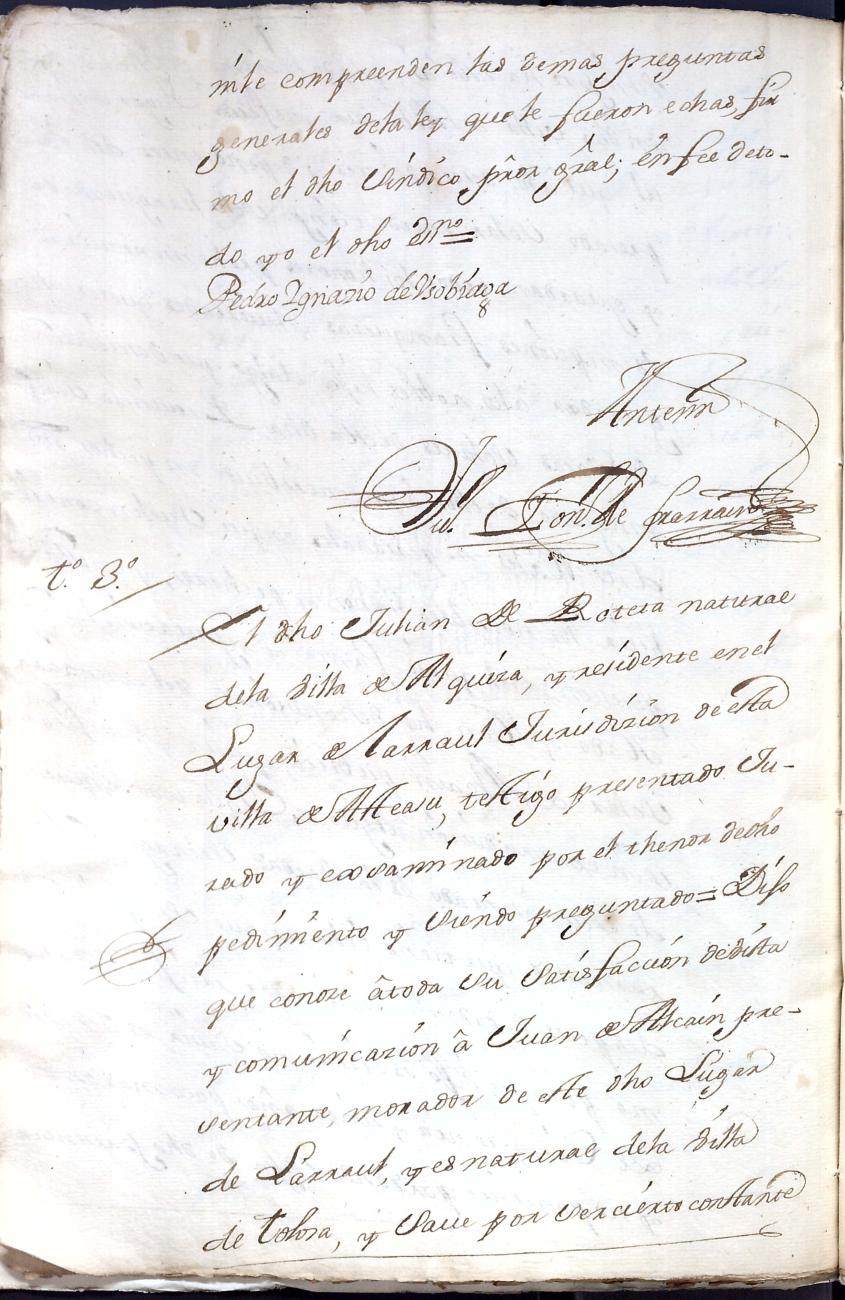 nile compreenden las demas preguntas
generales dela ley que le fueron echas, fir
mo el dho Síndico pror gral; en fee deto-
do yo el dho Srno
Pedro Ygnazio de Vsobiaga
Antemi
Jul. de Larrain
t.º 3.º
El dho Julian de Roteta natural
dela villa de Alquiza, y residente en el
Lugar de Larraul Jurisdizion de esta
villa de Asteasu, testigo presentado Ju-
rado y exsaminado por el thenor dedho
pedimiento y siendo preguntado = Dijo
que conoze â toda su satisfaccion de vista
y comunicazion â Juan de Alcain pre-
sentante, morador de este dho Lugar
de Larraul, y es natural dela villa
de Tolosa, y save por ser cierto constante